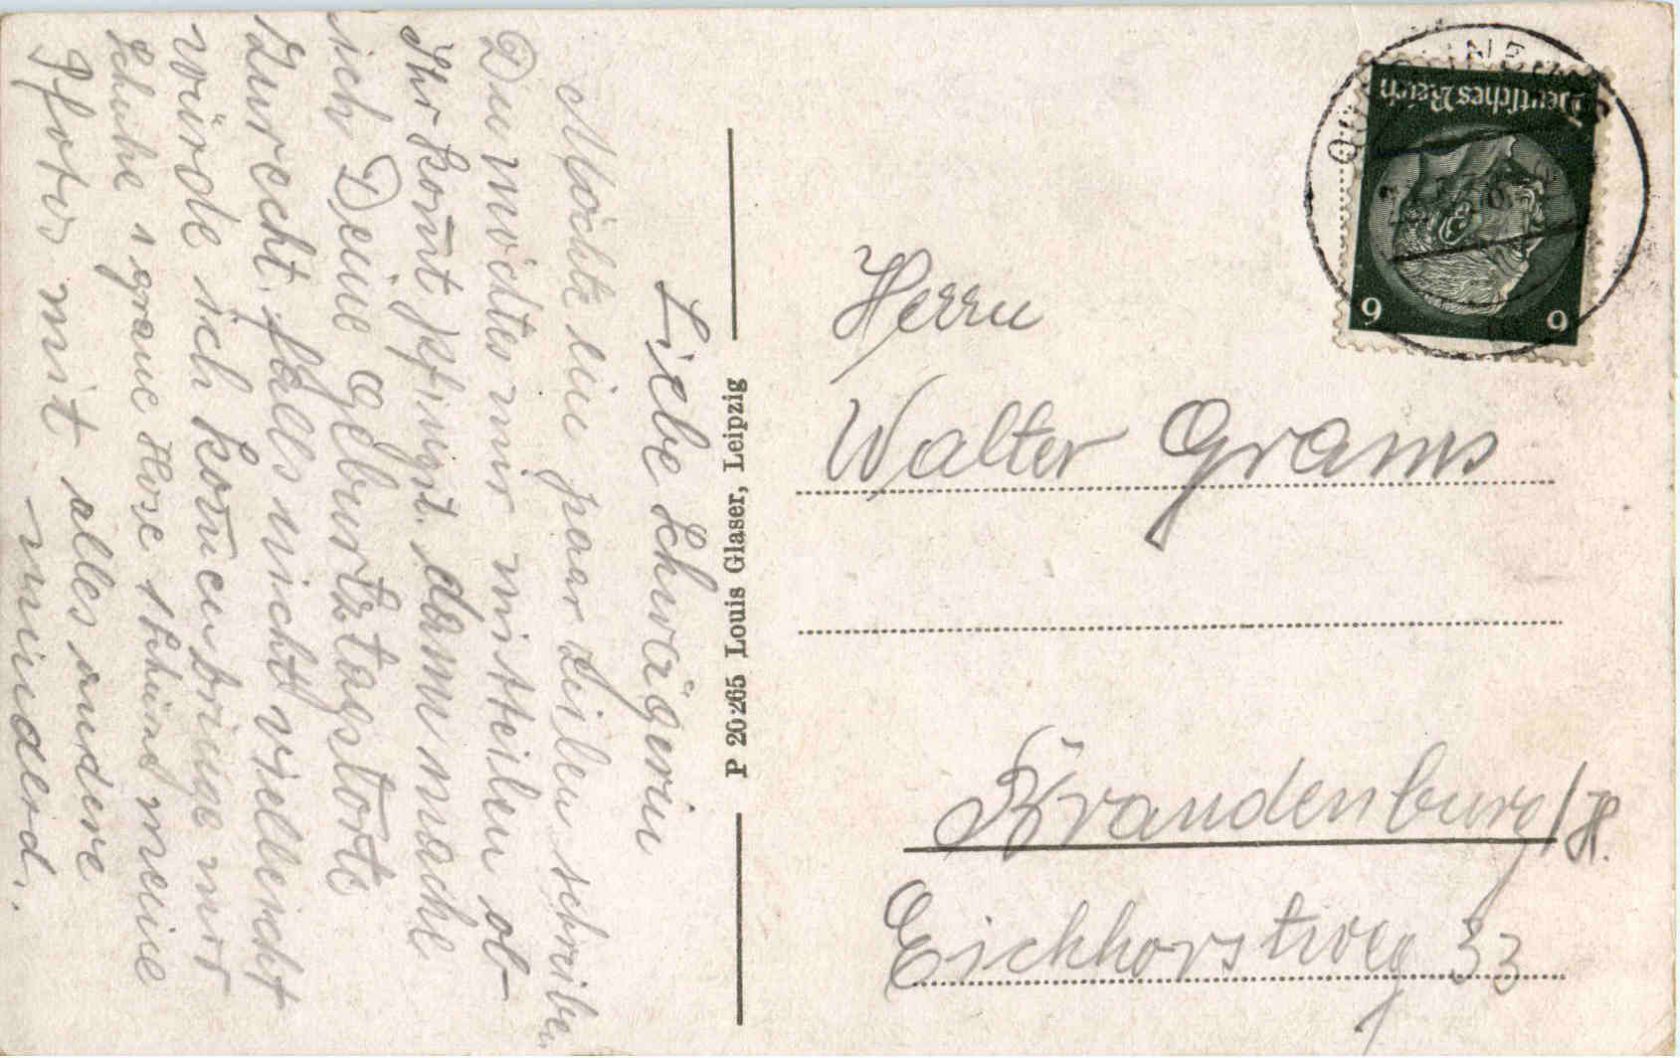 Liebe Schwägerin
Möchte ein paar Zeilen schreiben
Du möchtes mir mitteilen ob
Ihr komt Pfingst. dann mache
ich Deine Geburtztagstorte
Zurecht. falls nicht vielleicht
würde ich komen bringe mir
Schuhe 1 graue Hose 1 Hemd meine
Photos mit alles andere
münderd.
P 20265 Louis Glaser, Leipzig
Deutsches Reich
6 6
Herrn
Walter Grams
Brandenburg/H.
Eichhorstweg 33